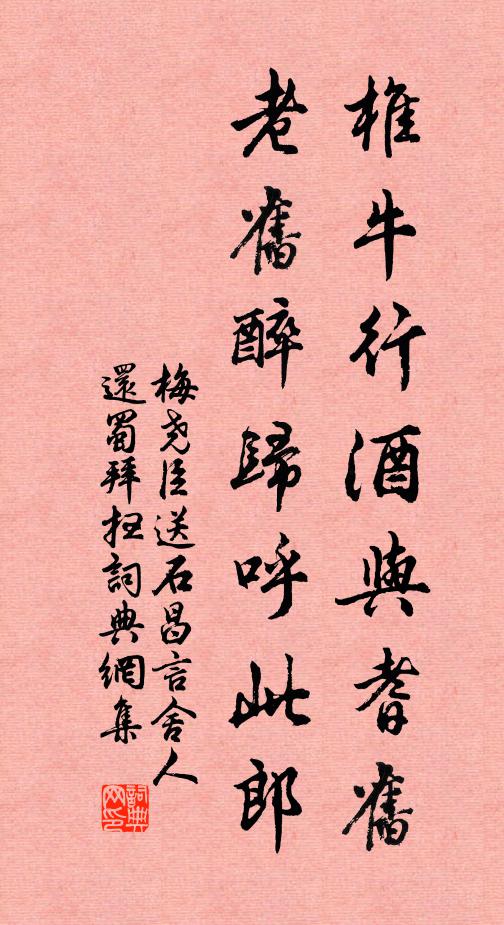 椎牛行酒與耆舊
老舊醉歸呼此郎
梅堯臣送石昌言舍人
還蜀拜掃詞典網集
詞典网印